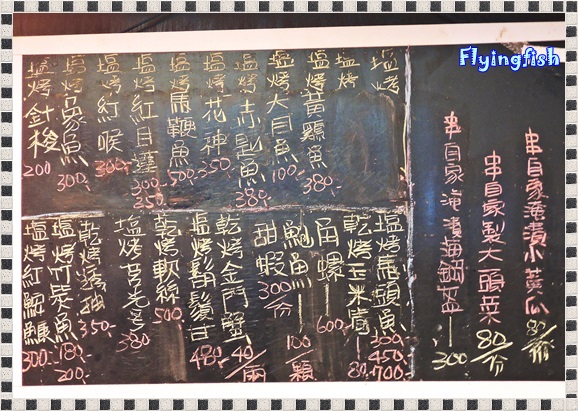 Flyingfish
串自家淹漬小黃瓜 80/份
串自家製大頭菜 80/份
串自家淹漬 300
塩烤
塩烤
塩烤黃鷄魚 380.-
塩烤大目魚 100.-
塩烤赤 魚 380.-
塩烤花神 350.-
塩烤馬鞭魚 500.-
塩烤紅目蓮 300.- 350.-
塩烤紅喉 300.-
塩烤象魚 300.-
塩烤針梭 200
塩烤馬頭魚 300.- 450.- 700.-
乾烤玉米筍 80.-
角螺 600.-
鮑魚 100/顆
甜蝦 300/份
乾烤金門蟹 40/兩
塩烤鬍鬚甘 480.-
乾烤軟絲 500.-
塩烤石老弓 380
乾烤 350.-
塩烤竹炭魚 180.- 200.-
塩烤紅鰱鰱 300.-